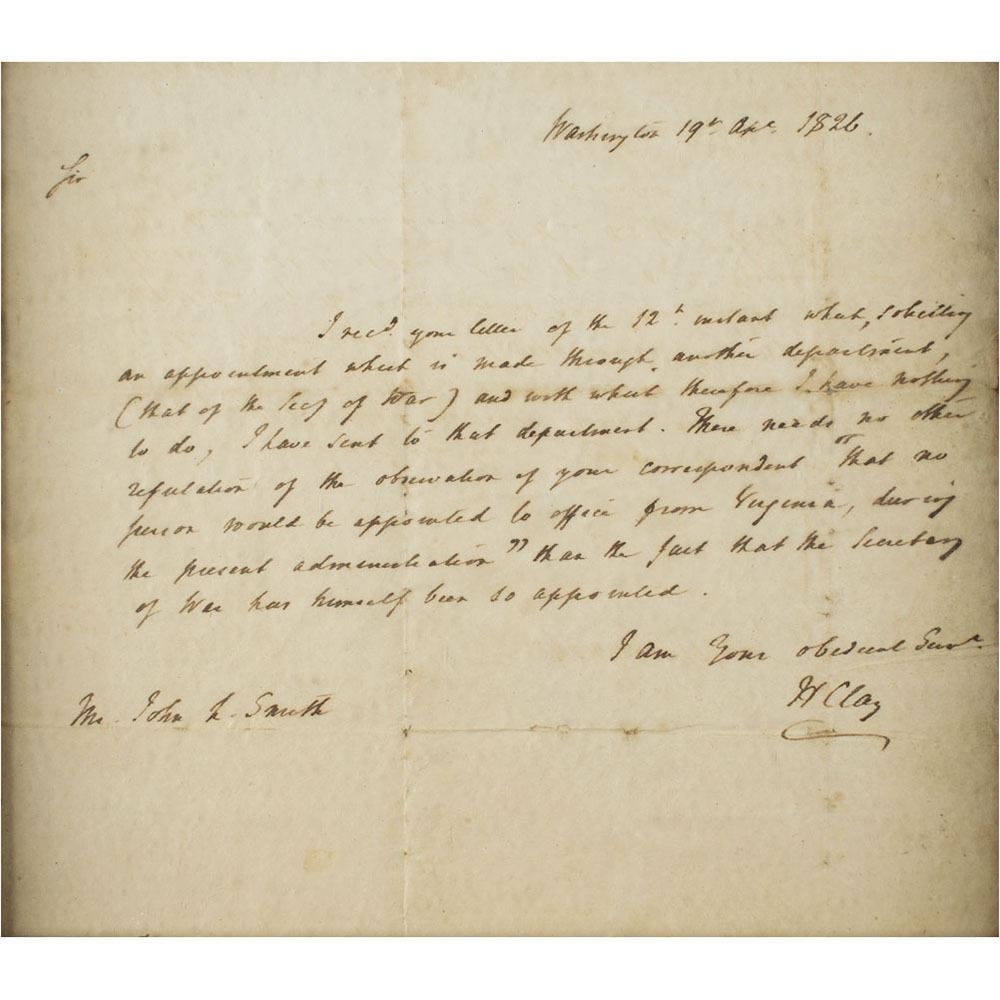 Washington 19th Apl. 1826.
Sir
I recd. your letter of the 12th. instant which, soliciting
an appointment which is made through another department,
(that of the Secy of War) and with which therefore I have nothing
to do, I have sent to that department. There needs no other
refutation of the observation of your correspondent "that no
person would be appointed to office from Virginia, during
the present administration" than the fact that the Secretary
of War has himself been so appointed.
I am Your obedient Servt.
H Clay
Mr. John L. Smith